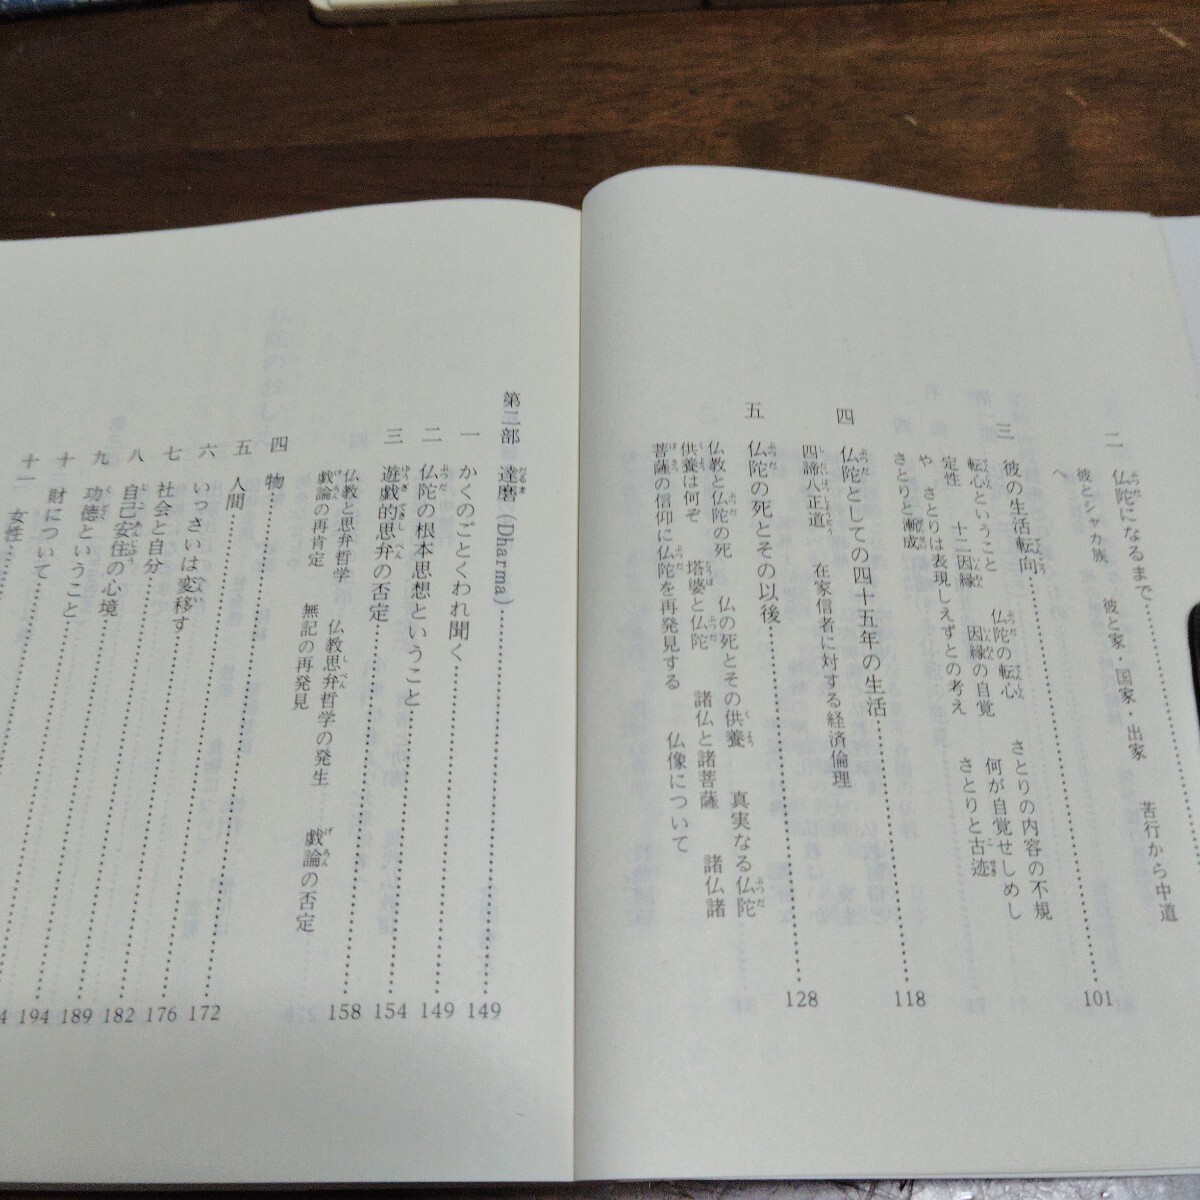 二 仏陀になるまで
彼とシャカ族 彼と家・国家・出家 苦行から中道
へ
三 彼の生活転向 101
転心ということ 仏陀の転心 さとりの内容の不規
定性 十二因縁 因縁の自覚 何が自覚せしめし
や さとりは表現しえずとの考え さとりと古迹
さとりと漸成
四 仏陀としての四十五年の生活 118
四諦八正道 在家信者に対する経済倫理
五 仏陀の死とその以後 128
仏教と仏陀の死 仏の死とその供養 真実なる仏陀
供養は何ぞ 塔婆と仏陀 諸仏と諸菩薩 諸仏諸
菩薩の信仰に仏陀を再発見する 仏像について
第二部 達磨（Dharma） 149
一 かくのごとくわれ聞く 149
二 仏陀の根本思想ということ 154
三 遊戯的思弁の否定 158
仏教と思弁哲学 仏教思弁哲学の発生 戯論の否定
戯論の再肯定 無記の再発見
四 物
五 人間 172
六 いっさいは変移す 176
七 社会と自分 182
八 自己安住の心境 189
九 功徳ということ 194
十 財について
十一 女性